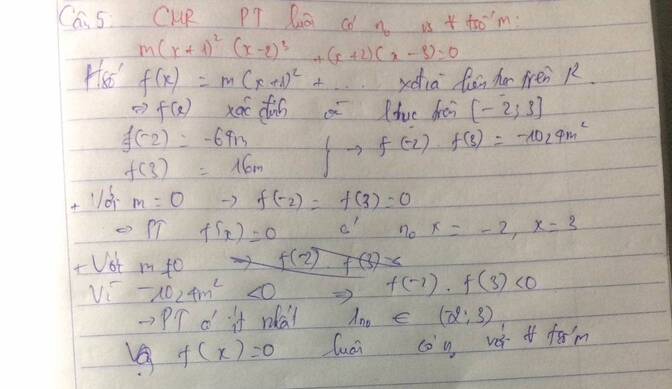 Câu 5: CMR PT luôn có no vs ∀ tsố m:
m(x+1)² (x-2)³ + (x+2)(x-3)=0
H/số f(x) = m(x+1)² + ... xđ và liên tục trên R
⇒ f(x) xác định và l/tục trên [-2; 3]
f(-2) = -64m
f(3) = 16m } → f(-2) . f(3) = -1024m²
+ Với m = 0 → f(-2) = f(3) = 0
⇒ PT f(x)=0 có no x = -2, x = 3
+ Với m ≠ 0
Vì -1024m² < 0 ⇒ f(-2) . f(3) < 0
→ PT có ít nhất 1 no ∈ (-2; 3)
Vậy f(x) = 0 luôn có no với ∀ tsố m